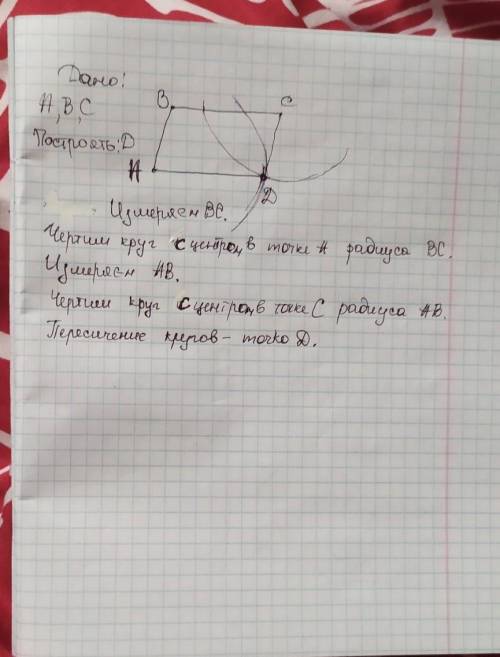 Дано:
A, B, C
B
C
Построить: D
A
D
Измеряем BC.
Чертим круг с центром в точке A радиуса BC.
Измеряем AB.
Чертим круг с центром в точке C радиуса AB.
Пересичение кругов - точко D.